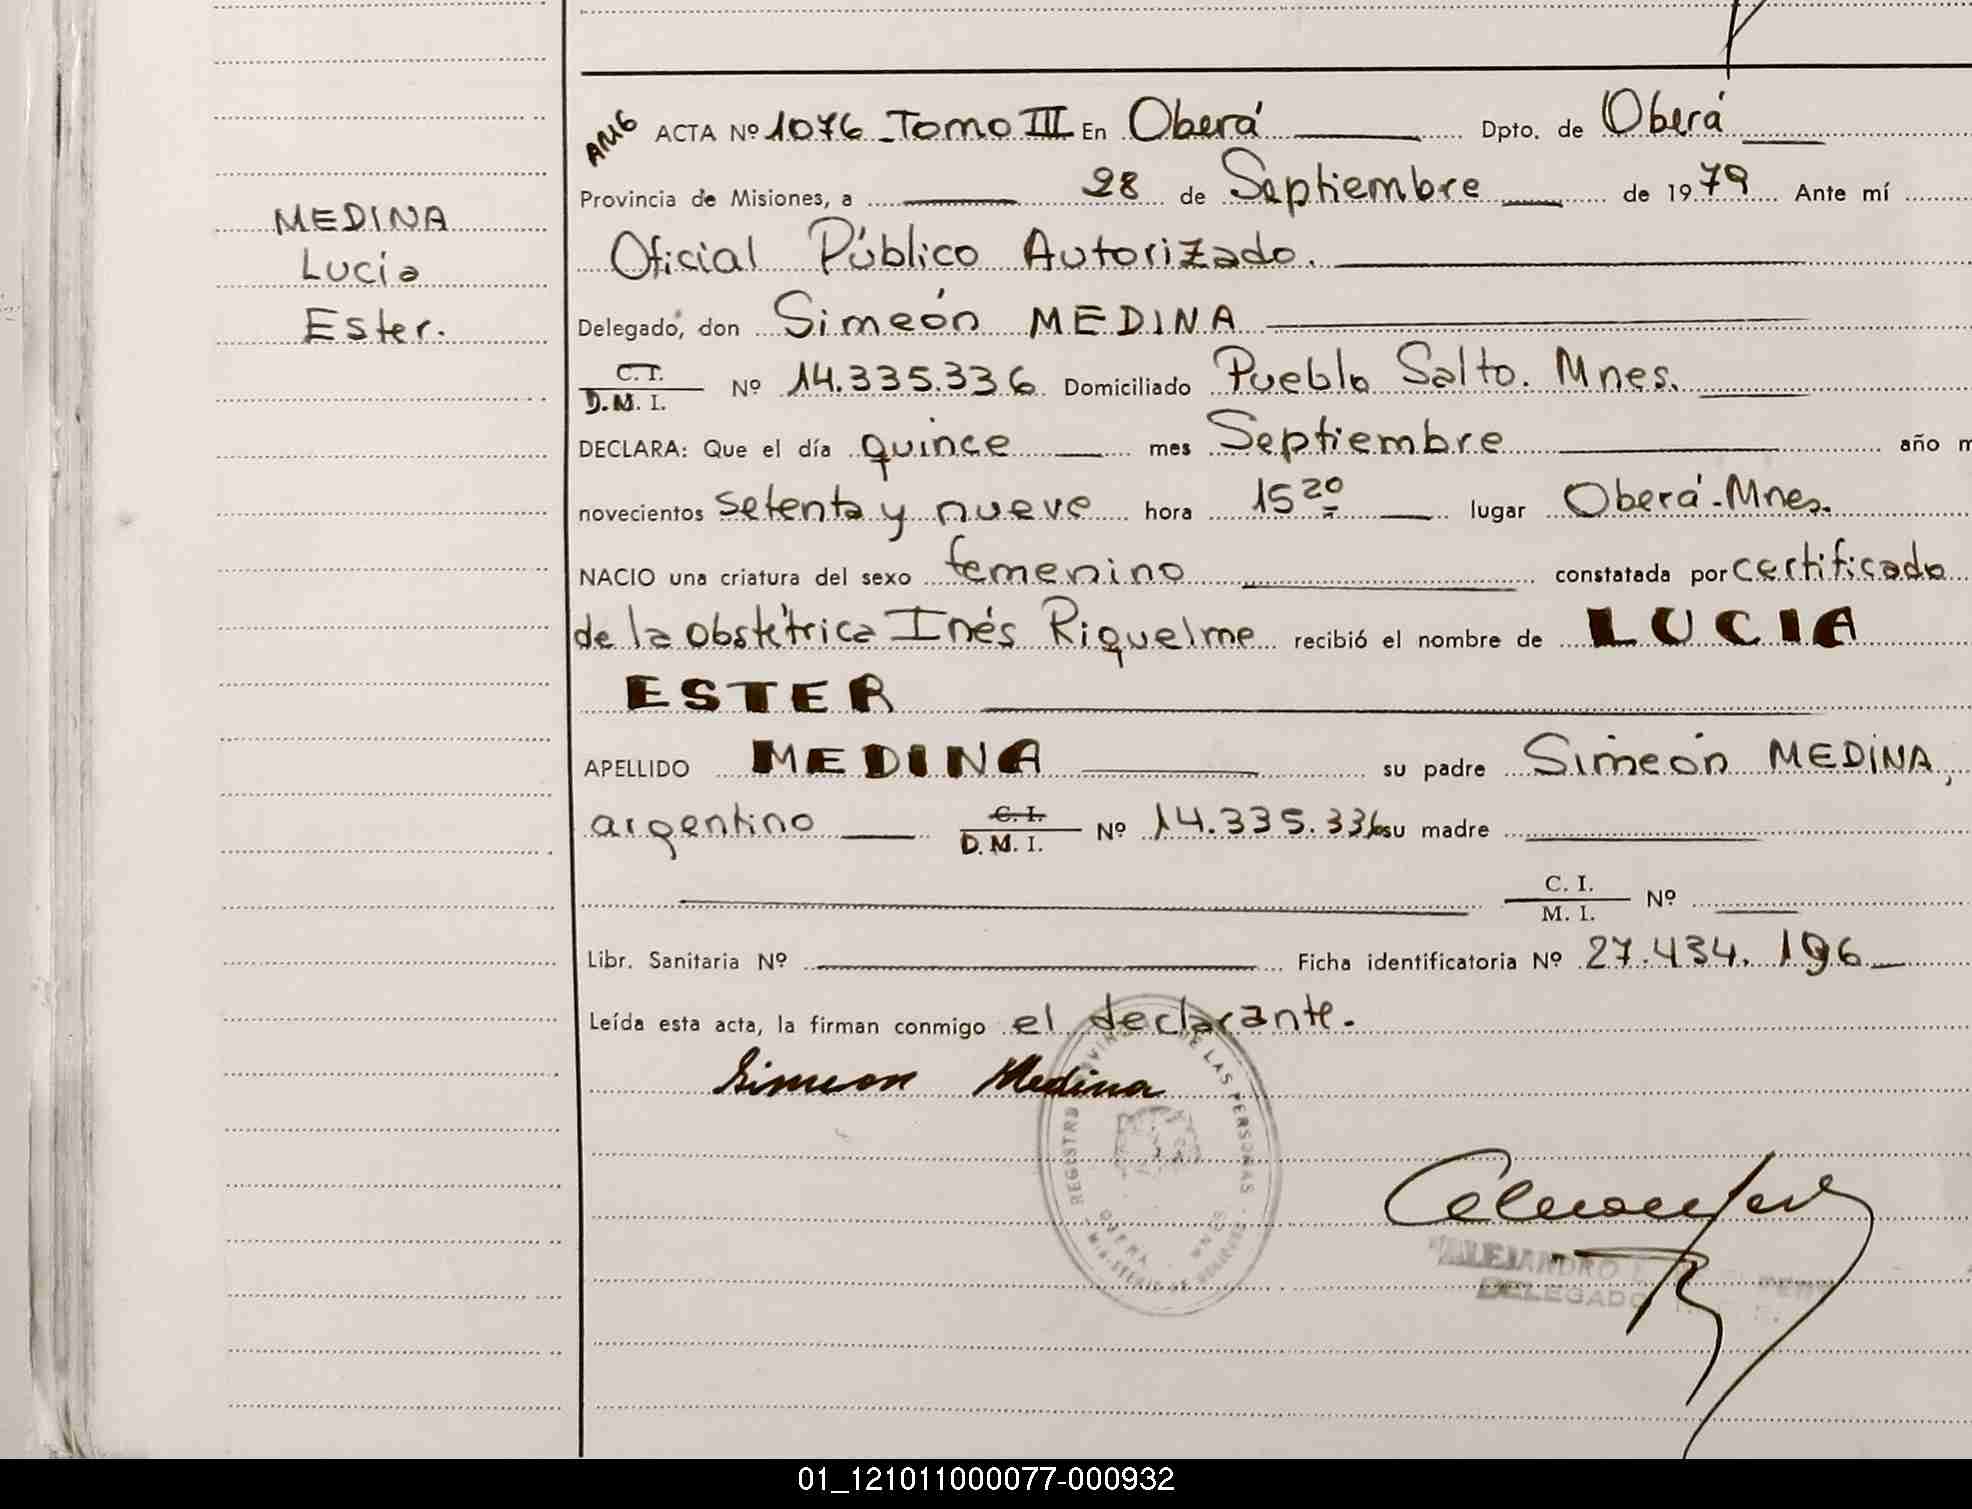 MEDINA
Lucía
Ester.
ACTA Nº 1076 - Tomo III En Oberá Dpto. de Oberá
Provincia de Misiones, a 28 de Septiembre de 1979 Ante mí
Oficial Público Autorizado.
Delegado, don Simeón MEDINA
C. I.
D. M. I. Nº 14.335.336 Domiciliado Pueblo Salto. Mnes.
DECLARA: Que el día quince mes Septiembre año m
novecientos setenta y nueve hora 15 20 lugar Oberá - Mnes.
NACIO una criatura del sexo femenino constatada por certificado
de la obstétrica Inés Riquelme recibió el nombre de LUCIA
ESTER
APELLIDO MEDINA su padre Simeón MEDINA,
argentino C. I.
D. M. I. Nº 14.335.336 su madre
C. I.
M. I. Nº
Libr. Sanitaria Nº Ficha identificatoria Nº 27.434.196
Leída esta acta, la firman conmigo el declarante.
Simeon Medina
REGISTRO PROVINCIAL DE LAS PERSONAS
OBERA MNES
MINISTERIO DE
ALEJANDRO
DELEGADO
01_121011000077-000932